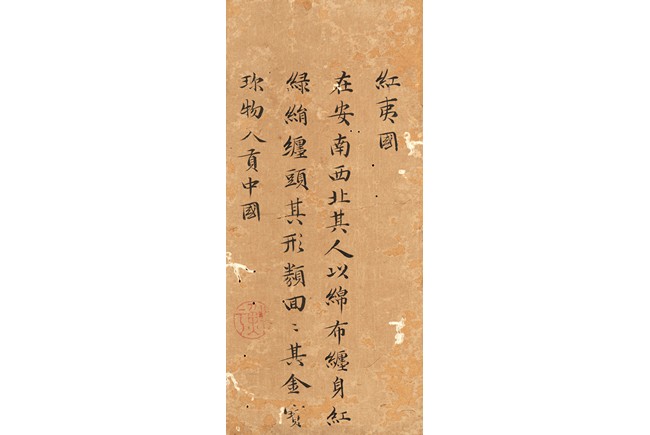 紅夷國
在安南西北其人以綿布纏身紅
緑絹纏頭其形類回〻其金寳
珎物入貢中國